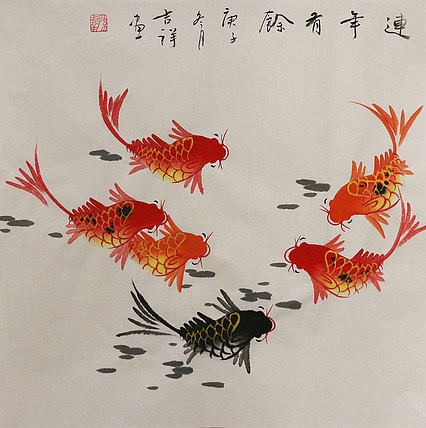 連年有餘
庚子
冬月
吉祥
画